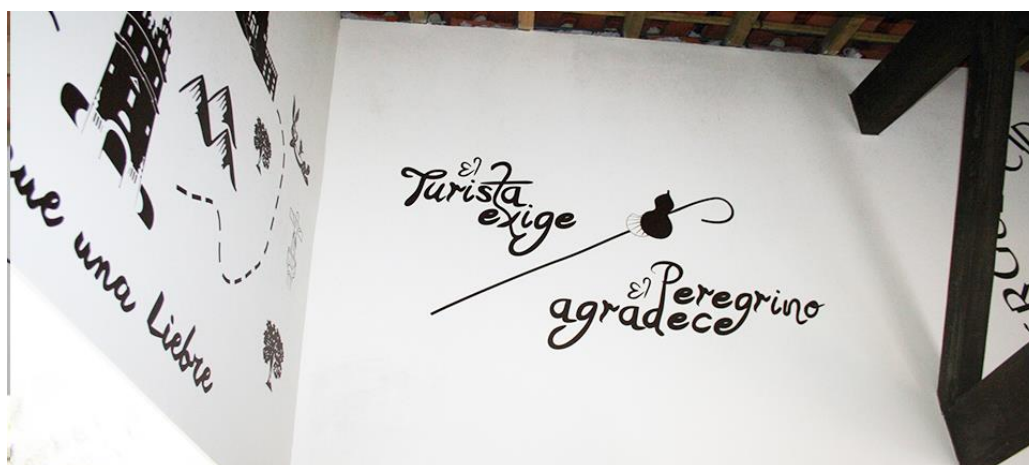 una Liebre
El
Turista
exige
El Peregrino
agradece